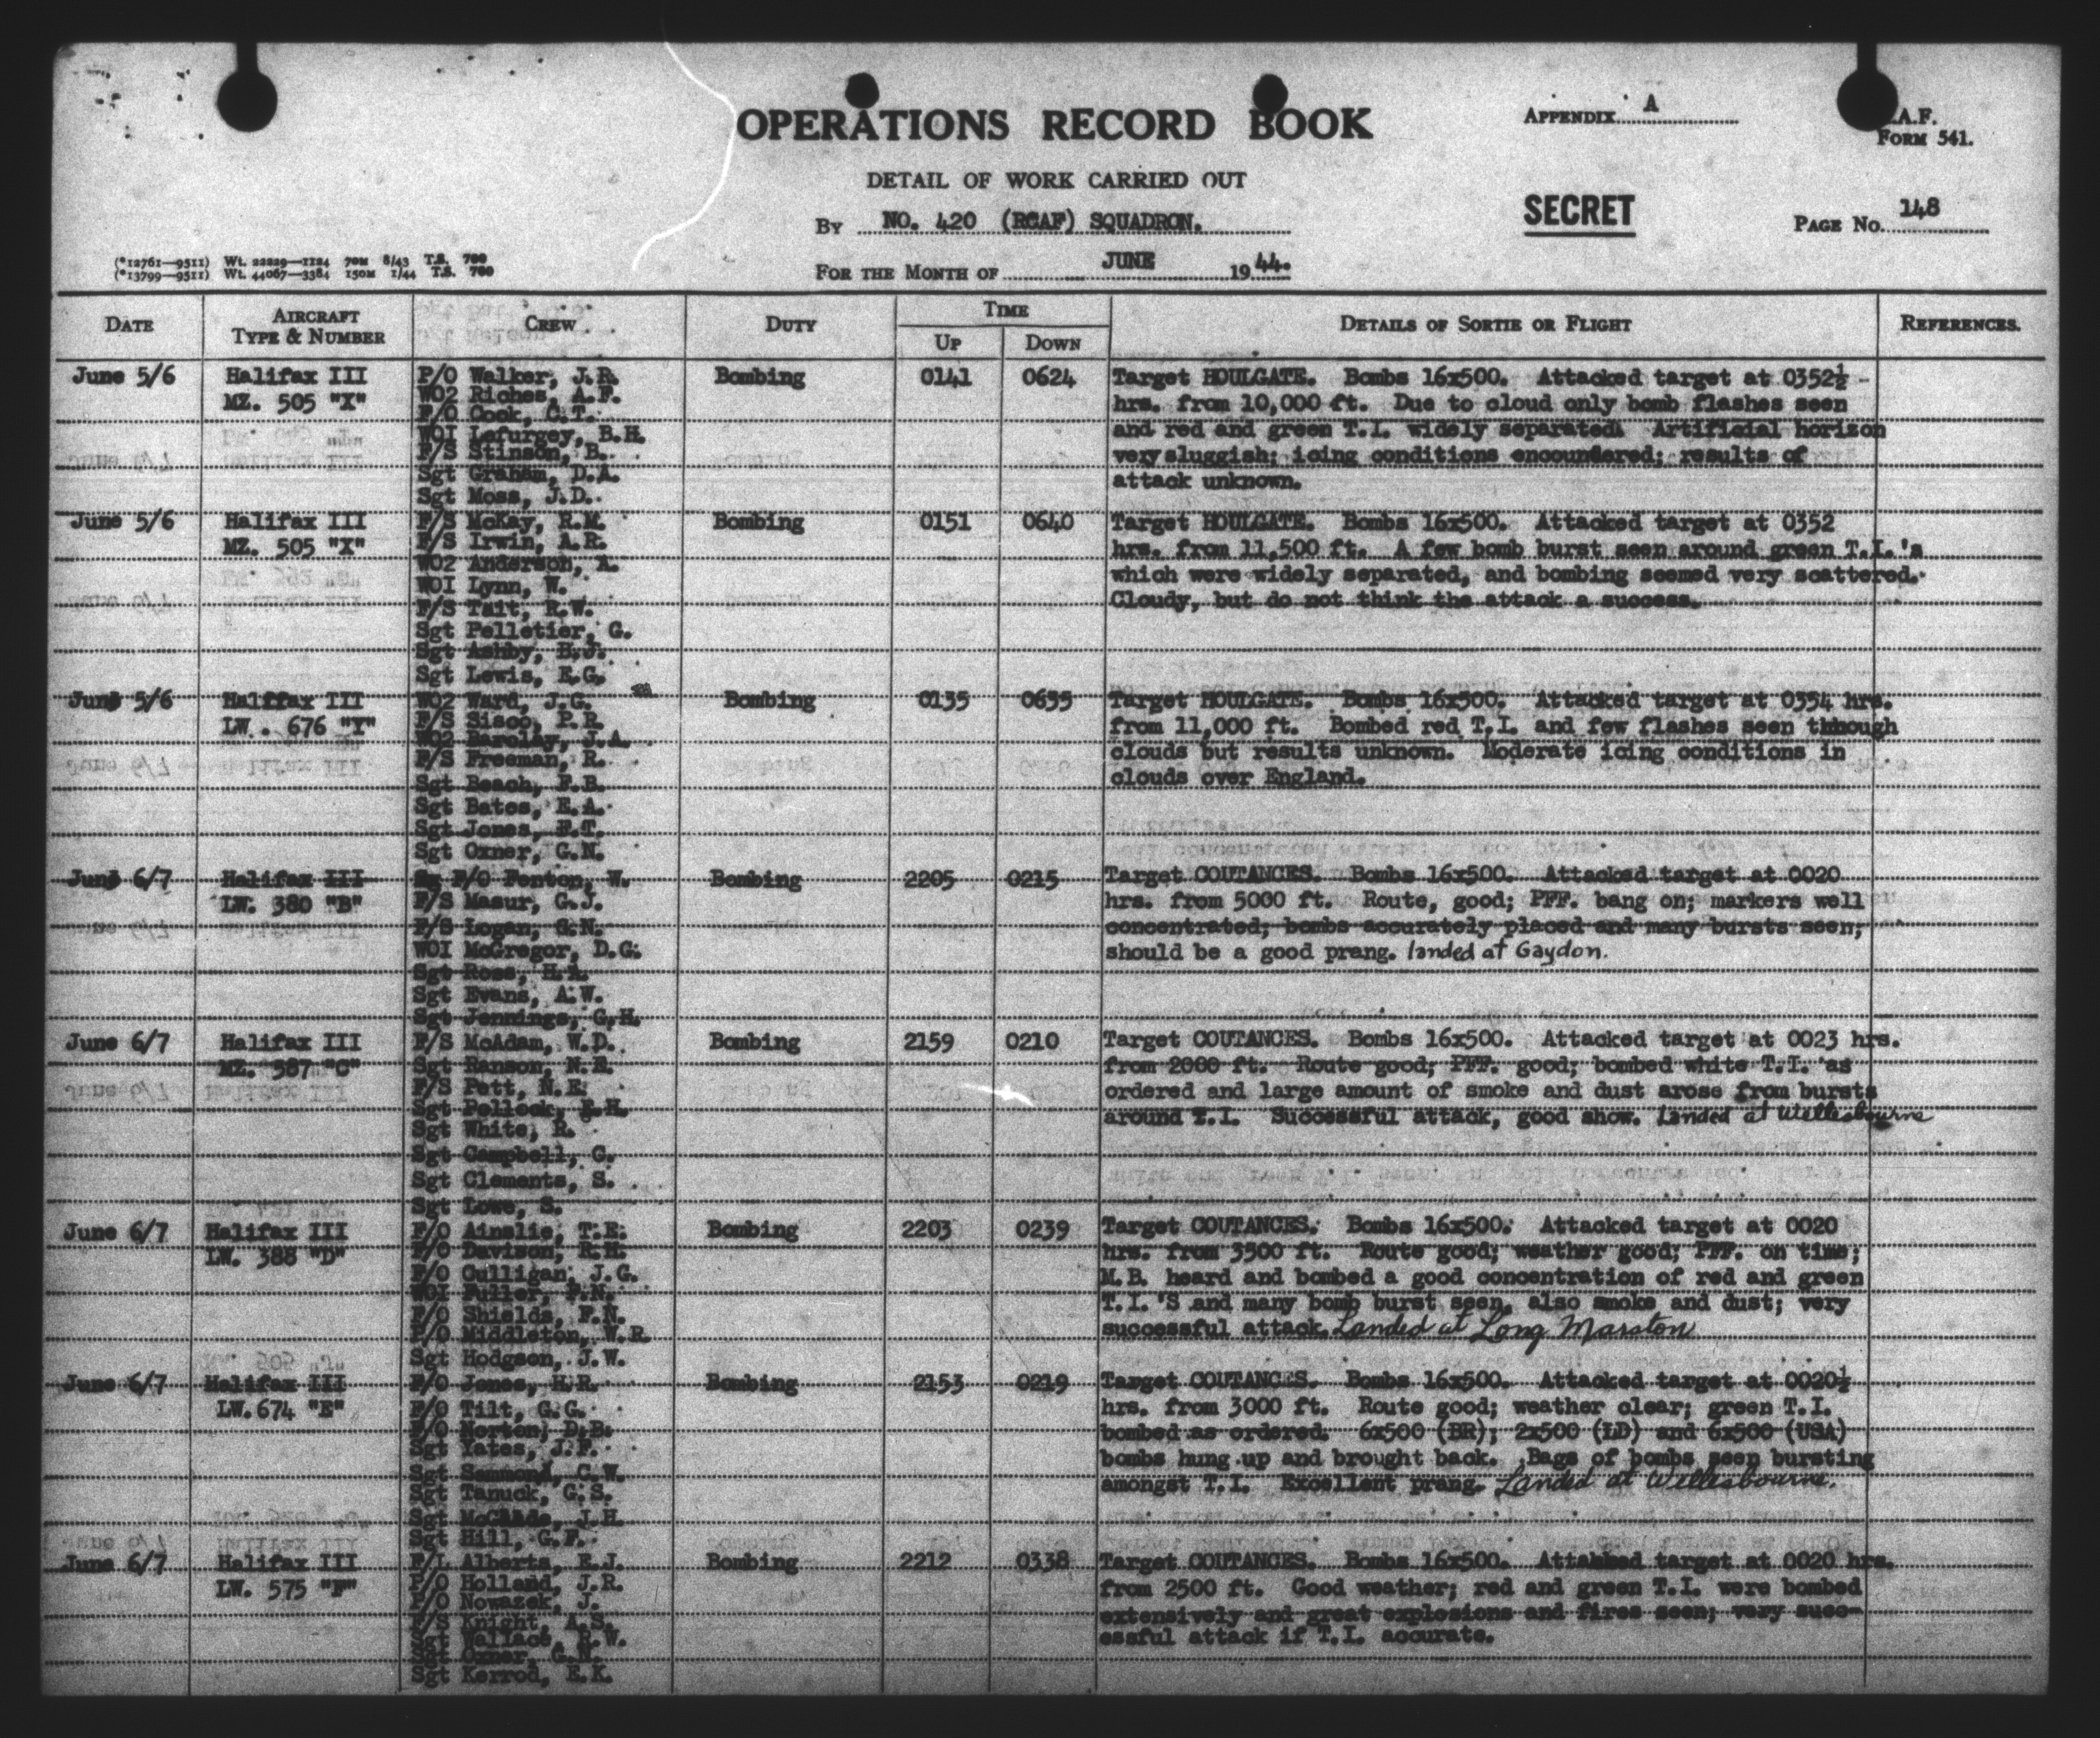 OPERATIONS RECORD BOOK
APPENDIX A
.A.F.
FORM 541.
DETAIL OF WORK CARRIED OUT
By NO. 420 (RCAF) SQUADRON.
SECRET
PAGE No. 148
(*12761—9511) Wt. 22229—1124 70M 8/43 T.S. 700
(*13799—9511) Wt. 44067—3384 150M 1/44 T.S. 700
FOR THE MONTH OF JUNE 1944.
DATE
AIRCRAFT TYPE & NUMBER
CREW
DUTY
TIME
UP
DOWN
DETAILS OF SORTIE OR FLIGHT
REFERENCES.
June 5/6
Halifax III
MZ. 505 "X"
P/O Walker, J.R.
WO2 Riches, A.F.
F/O Cook, C.T.
WO1 Lefurgey, B.H.
F/S Stinson, B.
Sgt Graham, D.A.
Sgt Moss, J.D.
Bombing
0141
0624
Target HOULGATE. Bombs 16x500. Attacked target at 0352½ -
hrs. from 10,000 ft. Due to cloud only bomb flashes seen
and red and green T.I. widely separated. Artificial horizon
very sluggish; icing conditions encountered; results of
attack unknown.
June 5/6
Halifax III
MZ. 505 "X"
F/S McKay, R.M.
F/S Irwin, A.R.
WO2 Anderson, A.
WO1 Lynn, W.
F/S Tait, R.W.
Sgt Pelletier, G.
Sgt Ashby, B.J.
Sgt Lewis, E.G.
Bombing
0151
0640
Target HOULGATE. Bombs 16x500. Attacked target at 0352
hrs. from 11,500 ft. A few bomb burst seen around green T.I.'s
which were widely separated, and bombing seemed very scattered.
Cloudy, but do not think the attack a success.
June 5/6
Halifax III
LW. 676 "Y"
WO2 Ward, J.G.
F/S Sisco, P.R.
WO2 Barclay, J.A.
F/S Freeman, R.
Sgt Beach, F.B.
Sgt Bates, E.A.
Sgt Jones, F.T.
Sgt Oxner, G.N.
Bombing
0135
0635
Target HOULGATE. Bombs 16x500. Attacked target at 0354 hrs.
from 11,000 ft. Bombed red T.I. and few flashes seen though
clouds but results unknown. Moderate icing conditions in
clouds over England.
June 6/7
Halifax III
LW. 380 "B"
F/O Fenton, W.
F/S Masur, G.J.
F/S Logan, S.N.
WO1 McGregor, D.G.
Sgt Ross, H.A.
Sgt Evans, A.W.
Sgt Jennings, G.H.
Bombing
2205
0215
Target COUTANCES. Bombs 16x500. Attacked target at 0020
hrs. from 5000 ft. Route, good; PFF. bang on; markers well
concentrated; bombs accurately placed and many bursts seen;
should be a good prang. landed at Gaydon.
June 6/7
Halifax III
MZ. 587 "C"
F/S McAdam, W.D.
Sgt Ranson, N.R.
F/S Pett, N.E.
Sgt Pollock, E.H.
Sgt White, R.
Sgt Campbell, G.
Sgt Clements, S.
Sgt Lowe, S.
Bombing
2159
0210
Target COUTANCES. Bombs 16x500. Attacked target at 0023 hrs.
from 2000 ft. Route good; PFF. good; bombed white T.I. as
ordered and large amount of smoke and dust arose from bursts
around T.I. Successful attack, good show. Landed at Wellesbourne
June 6/7
Halifax III
LW. 388 "D"
F/O Ainslie, T.E.
F/O Davison, R.H.
F/O Culligan, J.G.
WO1 Fuller, F.N.
F/O Shields, F.N.
P/O Middleton, W.R.
Sgt Hodgson, J.W.
Bombing
2203
0239
Target COUTANCES. Bombs 16x500. Attacked target at 0020
hrs. from 3500 ft. Route good; weather good; PFF. on time;
M.B. heard and bombed a good concentration of red and green
T.I.'S and many bomb burst seen, also smoke and dust; very
successful attack. Landed at Long Marston
June 6/7
Halifax III
LW. 674 "E"
F/O Jones, H.R.
F/O Tilt, G.G.
F/O Norton, D.B.
Sgt Yates, J.F.
Sgt Sammond, C.W.
Sgt Tanuck, G.S.
Sgt McGlade, J.H.
Sgt Hill, G.F.
Bombing
2153
0219
Target COUTANCES. Bombs 16x500. Attacked target at 0020½
hrs. from 3000 ft. Route good; weather clear; green T.I.
bombed as ordered. 6x500 (BR); 2x500 (LD) and 6x500 (USA)
bombs hung up and brought back. Bags of bombs seen bursting
amongst T.I. Excellent prang. Landed at Wellesbourne.
June 6/7
Halifax III
LW. 575 "F"
F/L Alberts, E.J.
P/O Holland, J.R.
P/O Nowazek, J.
F/S Knight, A.S.
Sgt Wallace, R.W.
Sgt Oxner, G.N.
Sgt Kerrod, E.K.
Bombing
2212
0338
Target COUTANCES. Bombs 16x500. Attacked target at 0020 hrs.
from 2500 ft. Good weather; red and green T.I. were bombed
extensively and great explosions and fires seen; very succ-
essful attack if T.I. accurate.